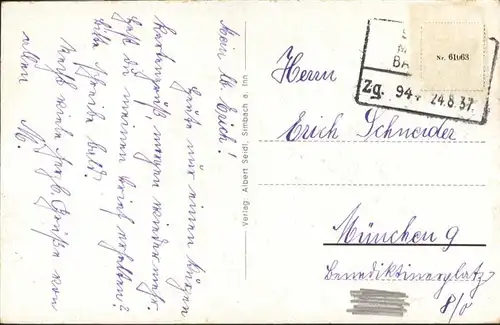 Mein lb. Erich!
Heute nur einen kurzen
Kartengruß, morgen wieder mehr.
Hast du meinen Brief erhalten?
Bitte schreibe bald!
Noch viele herzl. Grüße von
allen M.
Verlag: Albert Seidl, Simbach a. Inn
Nr. 61063
Zg. 944 24.8.37
Herrn
Erich Schneider
München 9
Benediktinerplatz
8/0